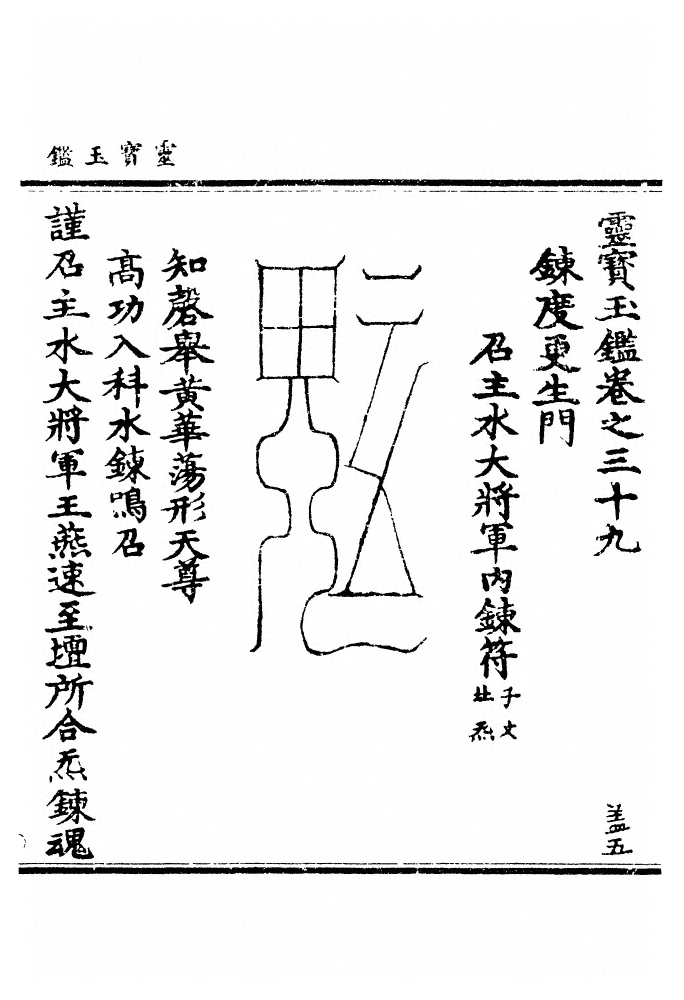 靈寶玉鑑
靈寶玉鑑卷之三十九
盖五
鍊度更生門
召主水大將軍內鍊符
子文
北炁
知磬舉黃華蕩形天尊
高功入科水鍊鳴召
謹召主水大將軍王燕速至壇所合炁鍊魂